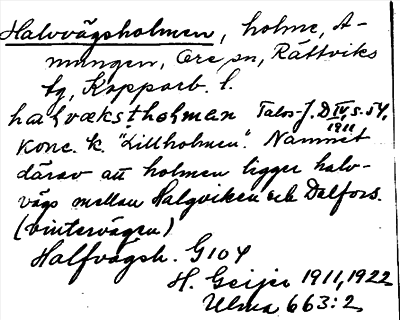 Halvvägsholmen, holme, A-
mungen, Ore sn, Rättviks
tg, Kopparb. l.
halvækstholman Talas-J. D IV, s. 54,
1911
Konc. k. "Lillholmen". Namnet
därav att holmen ligger halv-
vägs mellan Halgviken och Dalfors.
(vintervägen)
Halfvägsh. G104
H. Geijer 1911, 1922
Ulma 663:2